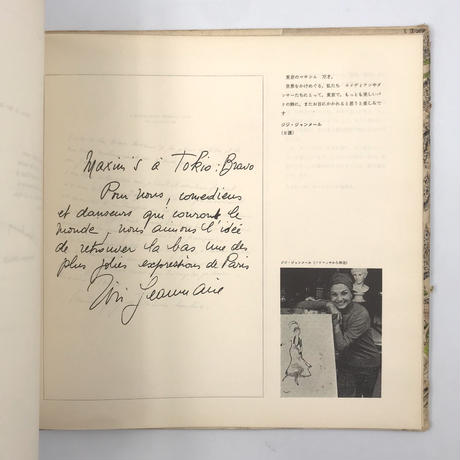 Maxim's à Tokio : Bravo
Pour nous, comédiens
et danseurs qui courons le
monde, nous aimons l'idée
de retrouver là bas une des
plus jolies expressions de Paris
Zizi Jeanmaire
東京のマキシム 万才。
世界をかけめぐる、私たち コメディアンやダ
ンサーたちにとって、東京で、もっとも美しいパ
リの顔に、またお目にかかれると思うと楽しみで
す
ジジ・ジャンメール
ジジ・ジャンメール